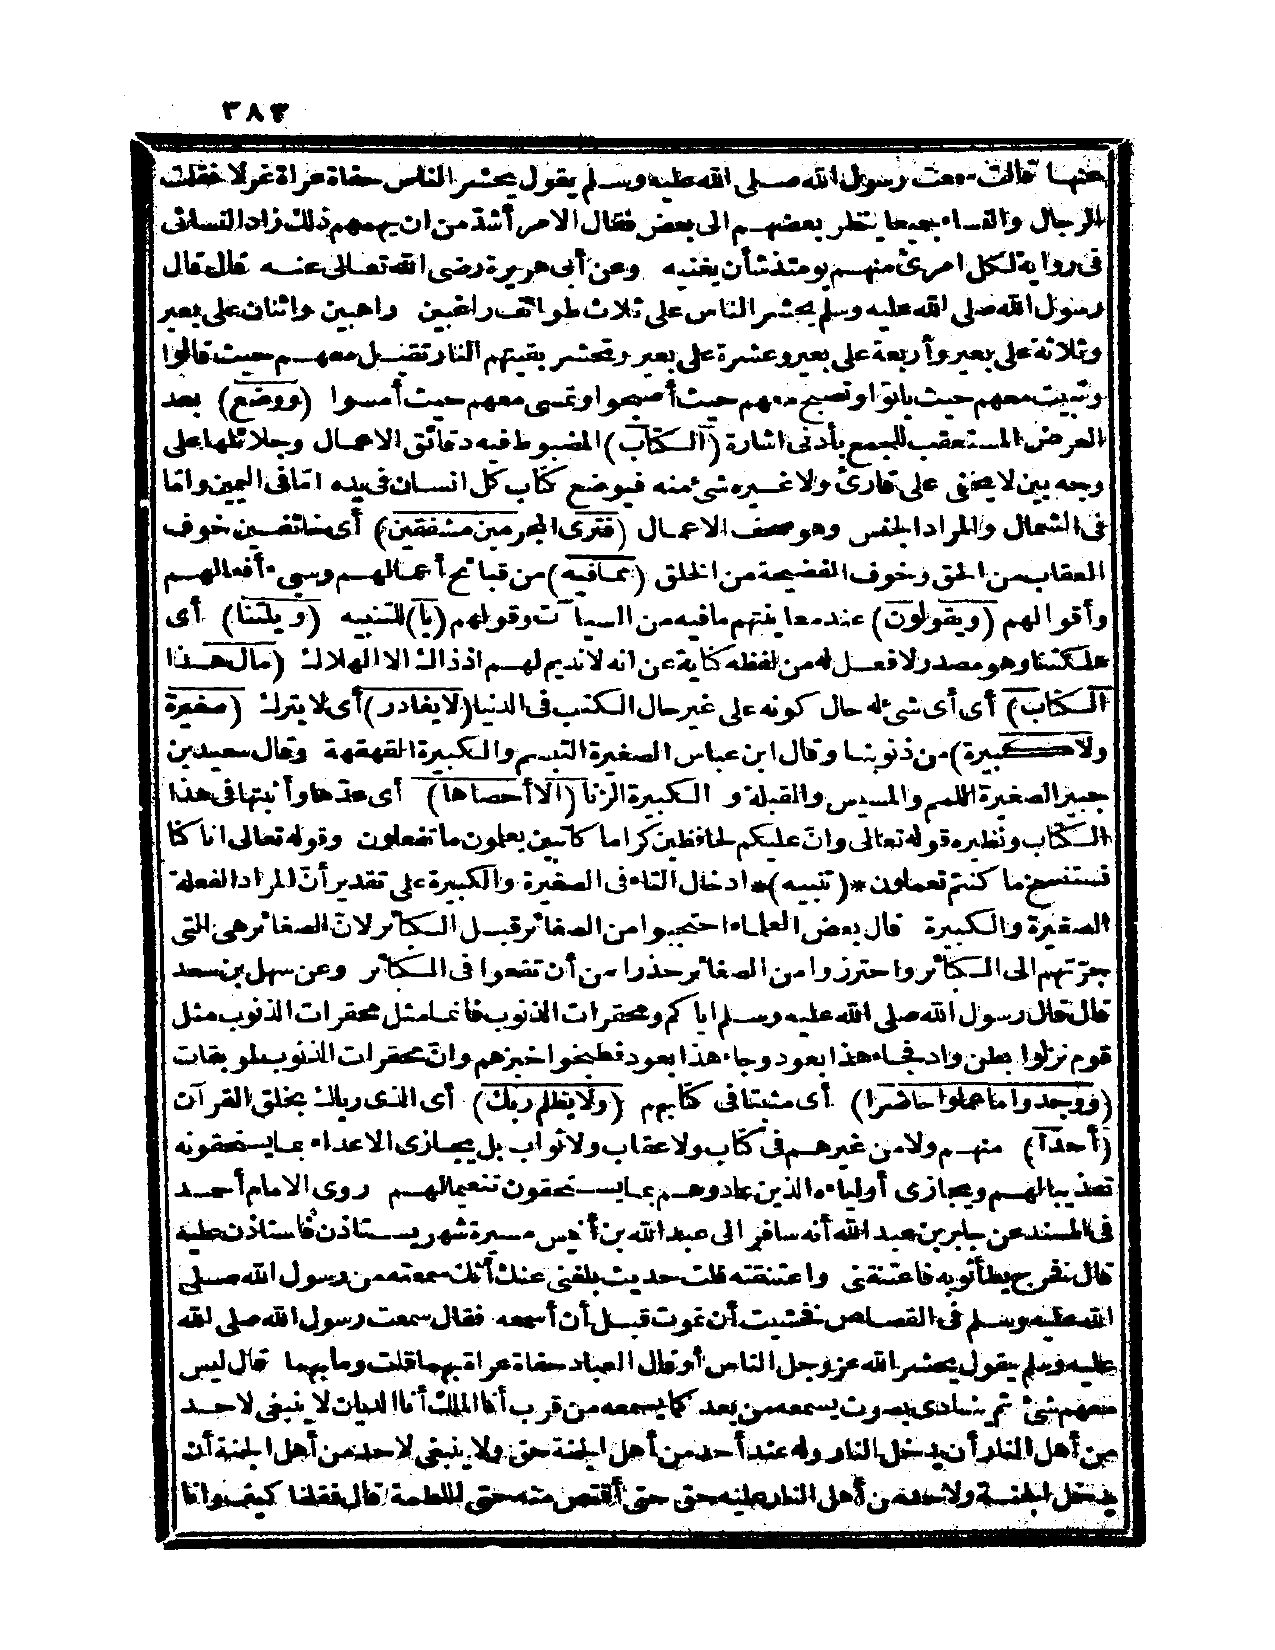 ٣٨٣
عنها قالت سمعت رسول الله صلى الله عليه وسلم يقول يحشر الناس حفاة عراة غرلا فقلت
الرجال والنساء جميعا ينظر بعضهم الى بعض فقال الامر أشد من ان يهمهم ذلك زاد النسائى
فى رواية لكل امرئ منهم يومئذ شأن يغنيه وعن أبى هريرة رضى الله تعالى عنه قال قال
رسول الله صلى الله عليه وسلم يحشر الناس على ثلاث طوائف راغبين راهبين واثنان على بعير
وثلاثة على بعير وأربعة على بعير وعشرة على بعير وتحشر بقيتهم النار تقيل معهم حيث قالوا
وتبيت معهم حيث باتوا وتصبح معهم حيث أصبحوا وتمسى معهم حيث أمسوا (ووضع) بعد
العرض المستعقب للجمع بأدنى اشارة (الكتاب) المضبوط فيه دقائق الاعمال وجلائلها على
وجه بين لا يخفى على قارئ ولا غيره شئ منه فيوضع كتاب كل انسان فى يده اما فى اليمين واما
فى الشمال والمراد الجنس وهو صحف الاعمال (فترى المجرمين مشفقين) أى خائفين خوف
العقاب من الحق وخوف الفضيحة من الخلق (مما فيه) من قبائح أعمالهم وسيئ أفعالهم
وأقوالهم (ويقولون) عند معاينتهم ما فيه من السيآت وقولهم (يا) للتنبيه (ويلتنا) أى
هلكتنا وهو مصدر لا فعل له من لفظه كناية عن انه لا نديم لهم اذ ذاك الا الهلاك (مال هذا
الكتاب) أى أى شئ له حال كونه على غير حال الكتب فى الدنيا (لا يغادر) أى لا يترك (صغيرة
ولا كبيرة) من ذنوبنا وقال ابن عباس الصغيرة التبسم والكبيرة القهقهة وقال سعيد بن
جبير الصغيرة اللمم والمسيس والقبلة و الكبيرة الزنا (الا أحصاها) أى عدها وأثبتها فى هذا
الكتاب ونظيره قوله تعالى وان عليكم لحافظين كراما كاتبين يعلمون ما تفعلون وقوله تعالى انا كنا
نستنسخ ما كنتم تعملون *(تنبيه)* ادخال التاء فى الصغيرة والكبيرة على تقدير أن المراد الفعلة
الصغيرة والكبيرة قال بعض العلماء احتجبوا من الصغائر قبل الكبائر لان الصغائر هى التى
جرتهم الى الكبائر واحترزوا من الصغائر حذرا من أن تقعوا فى الكبائر وعن سهل بن سعد
قال قال رسول الله صلى الله عليه وسلم اياكم ومحقرات الذنوب فانما مثل محقرات الذنوب مثل
قوم نزلوا بطن واد فجاء هذا بعود وجاء هذا بعود فطبخوا خبزهم وان محقرات الذنوب لموبقات
(ووجدوا ما عملوا حاضرا) أى مثبتا فى كتابهم (ولا يظلم ربك) أى الذى رباك بخلق القرآن
(أحدا) منهم ولا من غيرهم فى كتاب ولا عقاب ولا ثواب بل يجازى الاعداء بما يستحقونه
تعذيبا لهم ويجازى أولياءه الذين عادوهم بما يستحقون تنعيما لهم روى الامام أحمد
فى المسند عن جابر بن عبد الله أنه سافر الى عبد الله بن أنيس مسيرة شهر يستاذن فاستاذن عليه
قال فخرج يطأ ثوبه فاعتنقنى واعتنقته قلت حديث بلغنى عنك أنك سمعته من رسول الله صلى
الله عليه وسلم فى القصاص فخشيت أن تموت قبل أن أسمعه فقال سمعت رسول الله صلى الله
عليه وسلم يقول يحشر الله عز وجل الناس أو قال العباد حفاة عراة بهما قلت وما بهما قال ليس
معهم شئ ثم ينادى بصوت يسمعه من بعد كما يسمعه من قرب أنا الملك أنا الديان لا ينبغى لاحد
من أهل النار أن يدخل النار وله عند أحد من أهل الجنة حق ولا ينبغى لاحد من أهل الجنة أن
يدخل الجنة ولاحد من أهل النار عليه حق حتى أقتص منه حتى اللطمة قال فقلنا كيف وانا